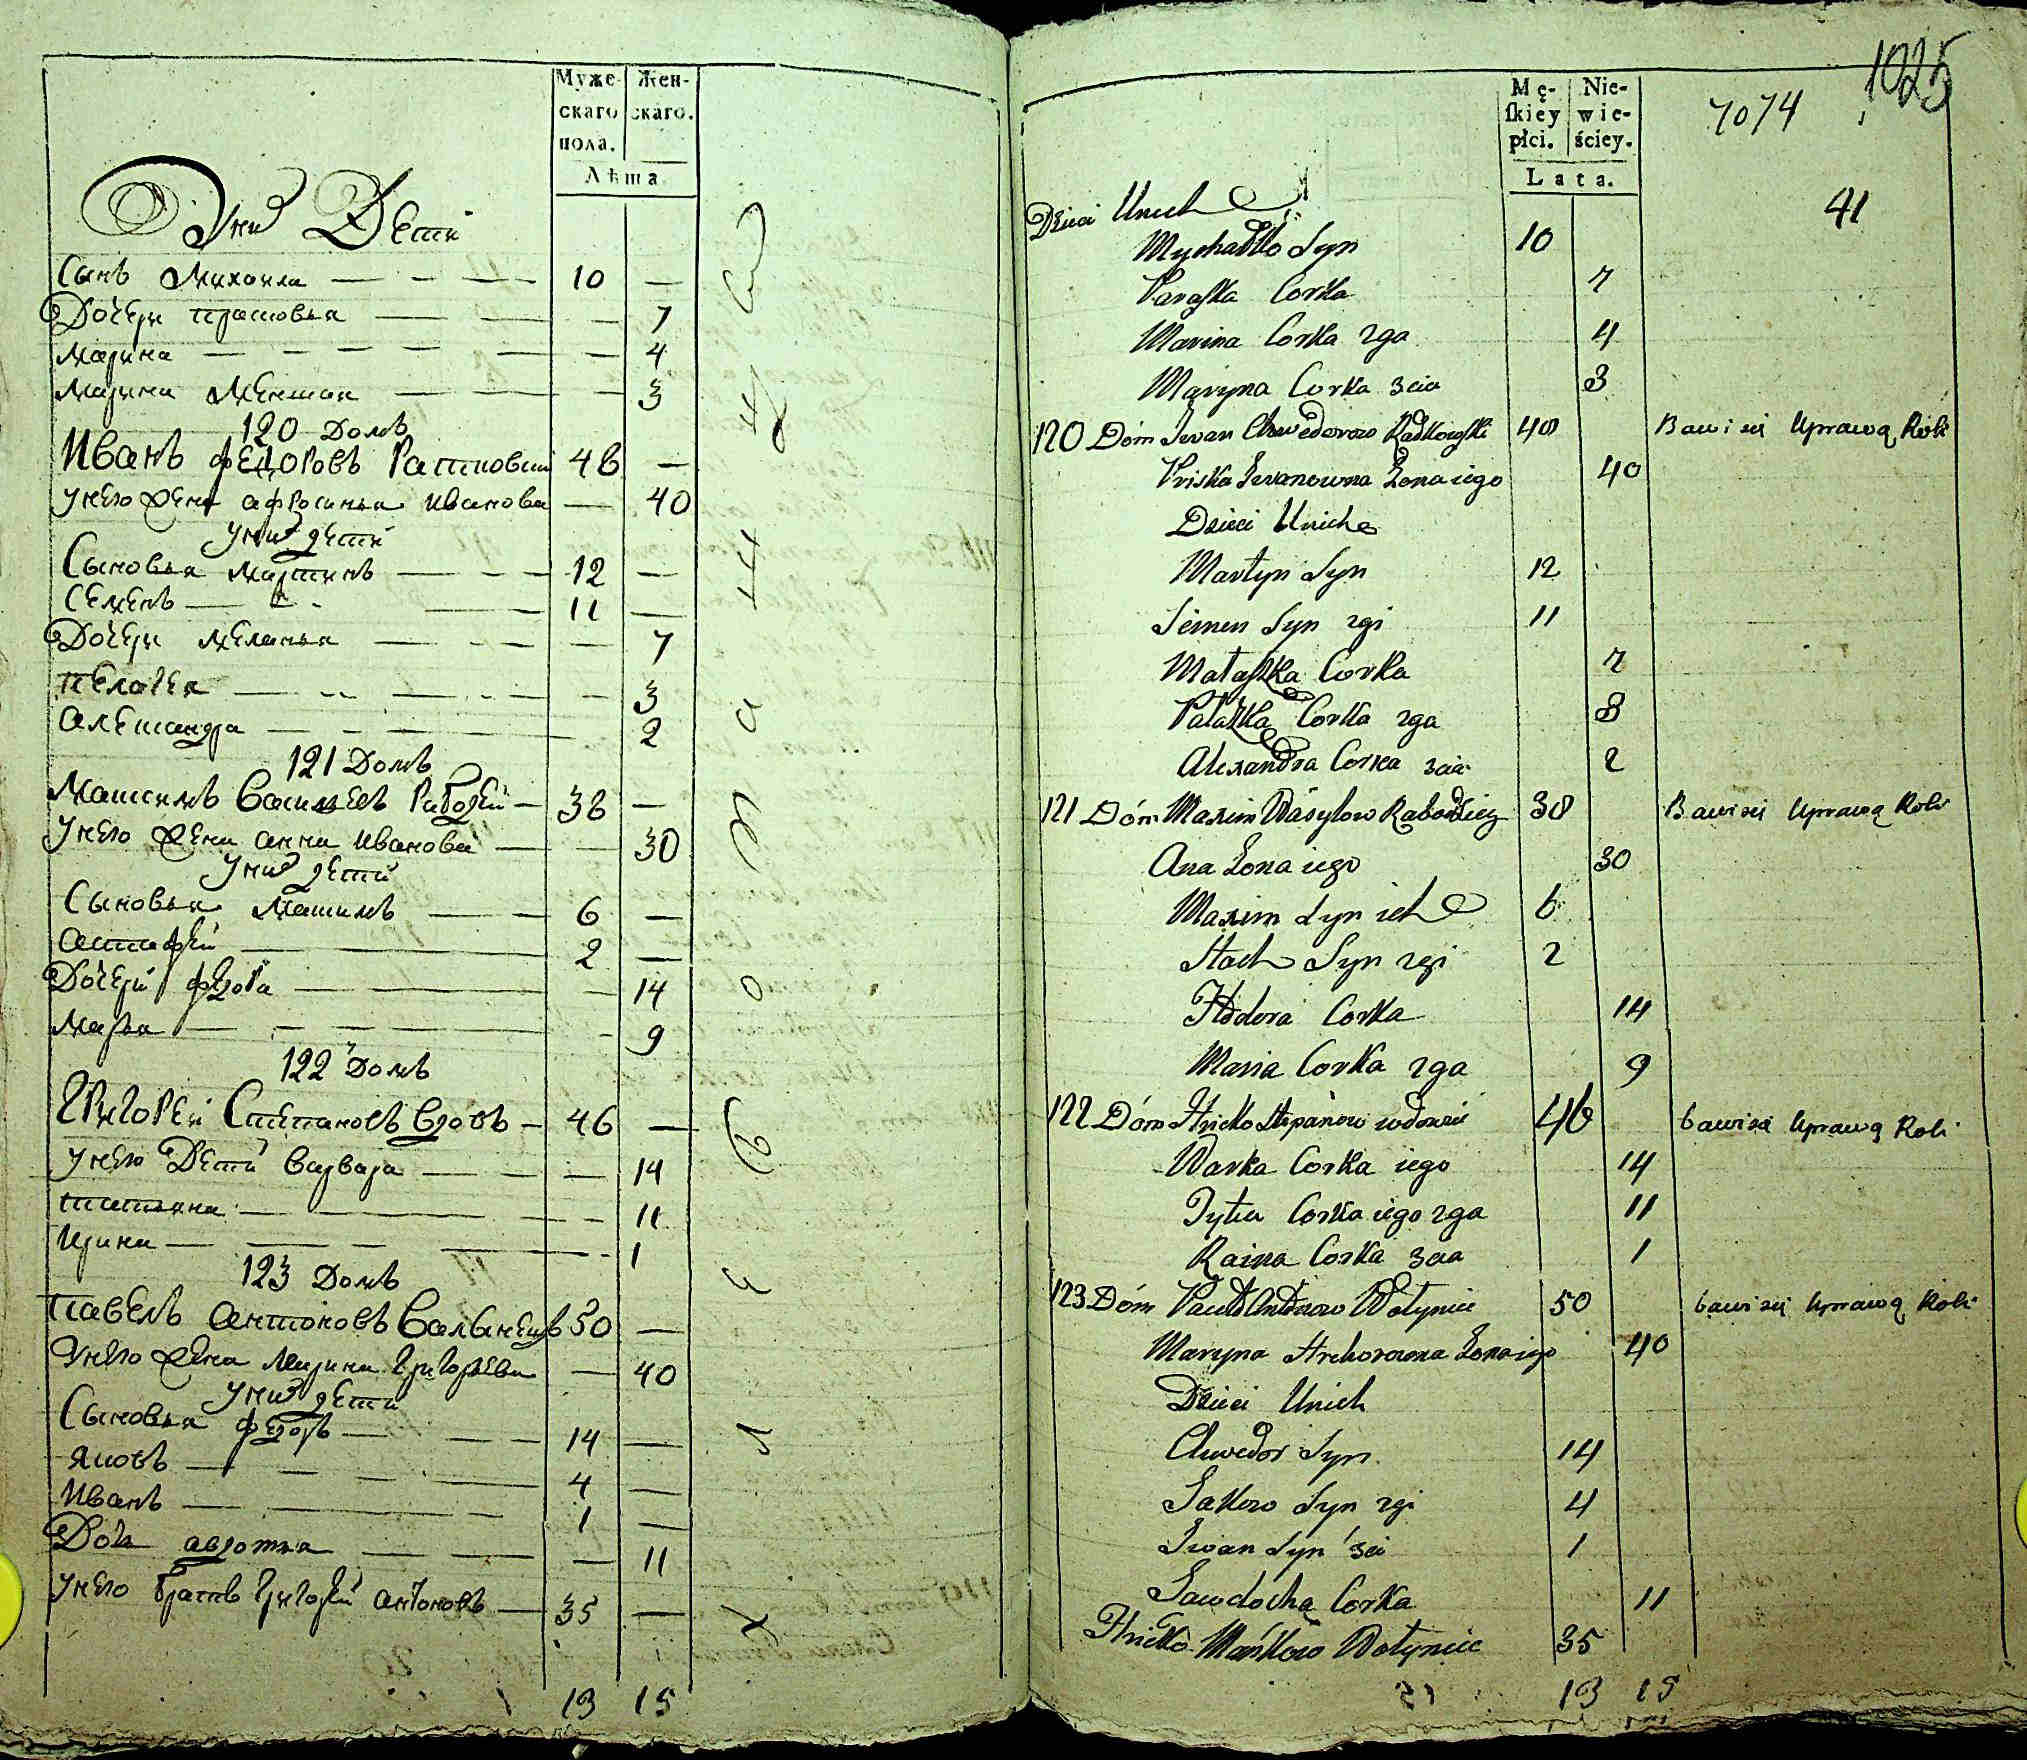 Муже-
скаго
пола.
Жен-
скаго.
Лѣта.
У них Дети
Сынъ Михаила — 10 —
Дочери прасковья — — 7
Марина — — 4
Марина Меншая — — 3
120 Домъ
Иванъ федоровъ Ратковский 48 —
у него жена афросинья иванова — 40
у них дети
Сыновья Мартинъ — 12 —
Семенъ — 11 —
Дочери меланья — — 7
пелагея — — 3
александра — — 2
121 Домъ
Максимъ Васильевъ — 38 —
у него жена анна иванова — — 30
у них дети
Сыновья Максимъ — 6 —
астафей — 2 —
Дочери федора — — 14
Марья — — 9
122 Домъ
Григорей Степановъ вдовъ — 46 —
у него Дети варвара — — 14
татьяна — — 11
ирина — — 1
123 Домъ
павелъ антоновъ Валынецъ 50 —
у него жена Марина григорьева — 40
у них дети
Сыновья федоръ — 14 —
яковъ — 4 —
иванъ — 1 —
Дочь авдотья — — 11
у него братъ григорей антоновъ — 35 —
13 15
Mę-
skiey
płci.
Nie-
wie-
ściey.
Lata.
7074
1025
41
Dzieci Unich
Mychałko Syn 10
Paraska Corka 7
Marina Corka 2ga 4
Maryna Corka 3cia 3
120 Dóm Jwan Chwedorow Radkowski 48 Bawi się Uprawą Roli
Priska Jwanowna Żona iego 40
Dzieci Unich
Martyn Syn 12
Siemen Syn 2gi 11
Małaszka Corka 7
Pałaszka Corka 2ga 3
Alexandra Corka 3cia 2
121 Dóm Maxim Wasylow 38 Bawi się Uprawą Roli
Ana Żona iego 30
Maxim Syn ich 6
Stach Syn 2gi 2
Chodora Corka 14
Maria Corka 2ga 9
122 Dóm Hricko Stepanow wdowiec 46 bawi się Uprawą Roli
Warka Corka iego 14
Corka iego 2ga 11
Raina Corka 3cia 1
123 Dóm Paweł Antonow Wołyniec 50 bawi się Uprawą Roli
Maryna Hrehorowna Żona iego 40
Dzieci Unich
Chwedor Syn 14
Jakow Syn 2gi 4
Jwan Syn 3ci 1
Jawdocha Corka 11
Hricko Wołyniec 35
13 15